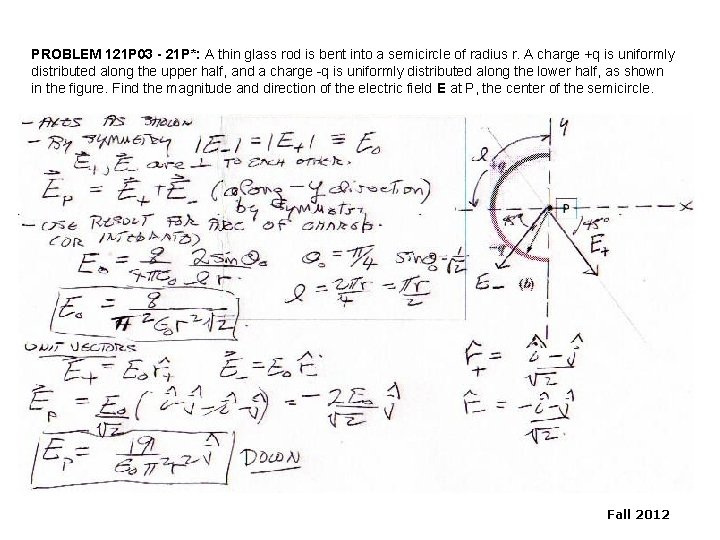 PROBLEM 121P03 - 21P*: A thin glass rod is bent into a semicircle of radius r. A charge +q is uniformly
distributed along the upper half, and a charge -q is uniformly distributed along the lower half, as shown
in the figure. Find the magnitude and direction of the electric field E at P, the center of the semicircle.
- AXES AS SHOWN
- BY SYMMETRY |E_-| = |E_+| ≡ E₀
E⃗₊, E⃗₋ are ⊥ TO EACH OTHER.
E⃗_P = E⃗₊ + E⃗₋ (along -y direction)
by symmetry
- USE RESULT FOR ARC OF CHARGE.
(OR INTEGRATE)
E₀ = q/4πε₀ 2 sin θ₀/l r θ₀ = π/4 sin θ₀ = 1/√2
l = 2πr/4 = πr/2
E₀ = q/π²ε₀r²√2
UNIT VECTORS
E⃗₊ = E₀ r̂₊ E⃗₋ = E₀ r̂₋
E⃗_P = E₀/√2 (î - ĵ - î - ĵ) = - 2E₀/√2 ĵ
E_P = |q|/ε₀π²r² ĵ DOWN
y
l
+q
P
x
45°
45°
-q
E₋
E₊
(b)
r̂₊ = î - ĵ/√2
r̂₋ = -î - ĵ/√2
Fall 2012